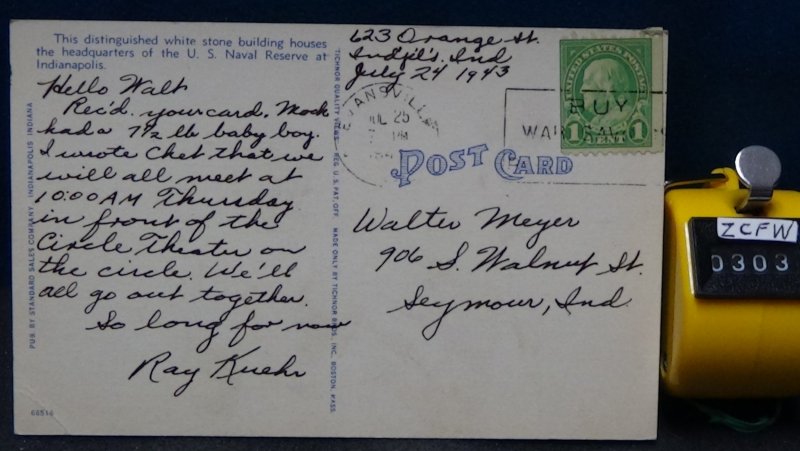 This distinguished white stone building houses
the headquarters of the U. S. Naval Reserve at
Indianapolis.
Hello Walt
Rec'd. your card. Mack
had a 7½ lb baby boy.
I wrote Chet that we
will all meet at
10:00 AM Thursday
in front of the
Circle Theater on
the circle. We'll
all go out together.
So long for now
Ray Kuehr
66514
PUB. BY STANDARD SALES COMPANY, INDIANAPOLIS INDIANA
TICHNOR QUALITY VIEWS REG. U.S. PAT. OFF. MADE ONLY BY TICHNOR BROS. INC. BOSTON, MASS.
623 Orange St.
Ind'pl's. Ind
July 24 1943
EVANSVILLE
JUL 25
PM
BUY
WAR SAV
UNITED STATES POSTAGE
1 CENT 1
POST CARD
Walter Meyer
906 S. Walnut St.
Seymour, Ind.
ZCFW
0303